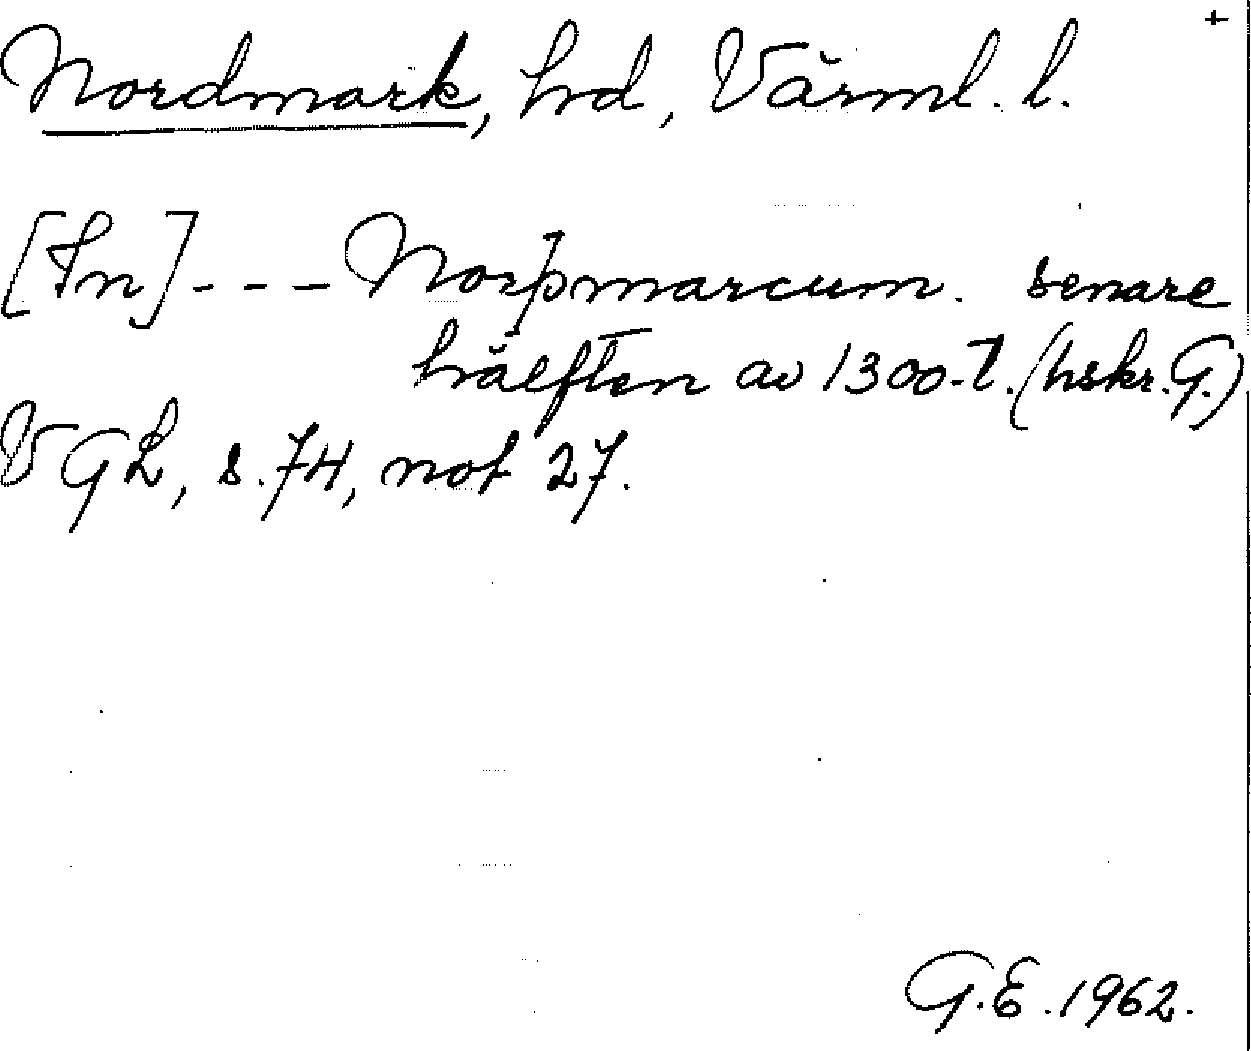 +
Nordmark, hd, Värml. l.
[In] --- Norþmarcum. senare
hälften av 1300-t. (hskr. G.)
VGL, s. 74, not 27.
G.E. 1962.